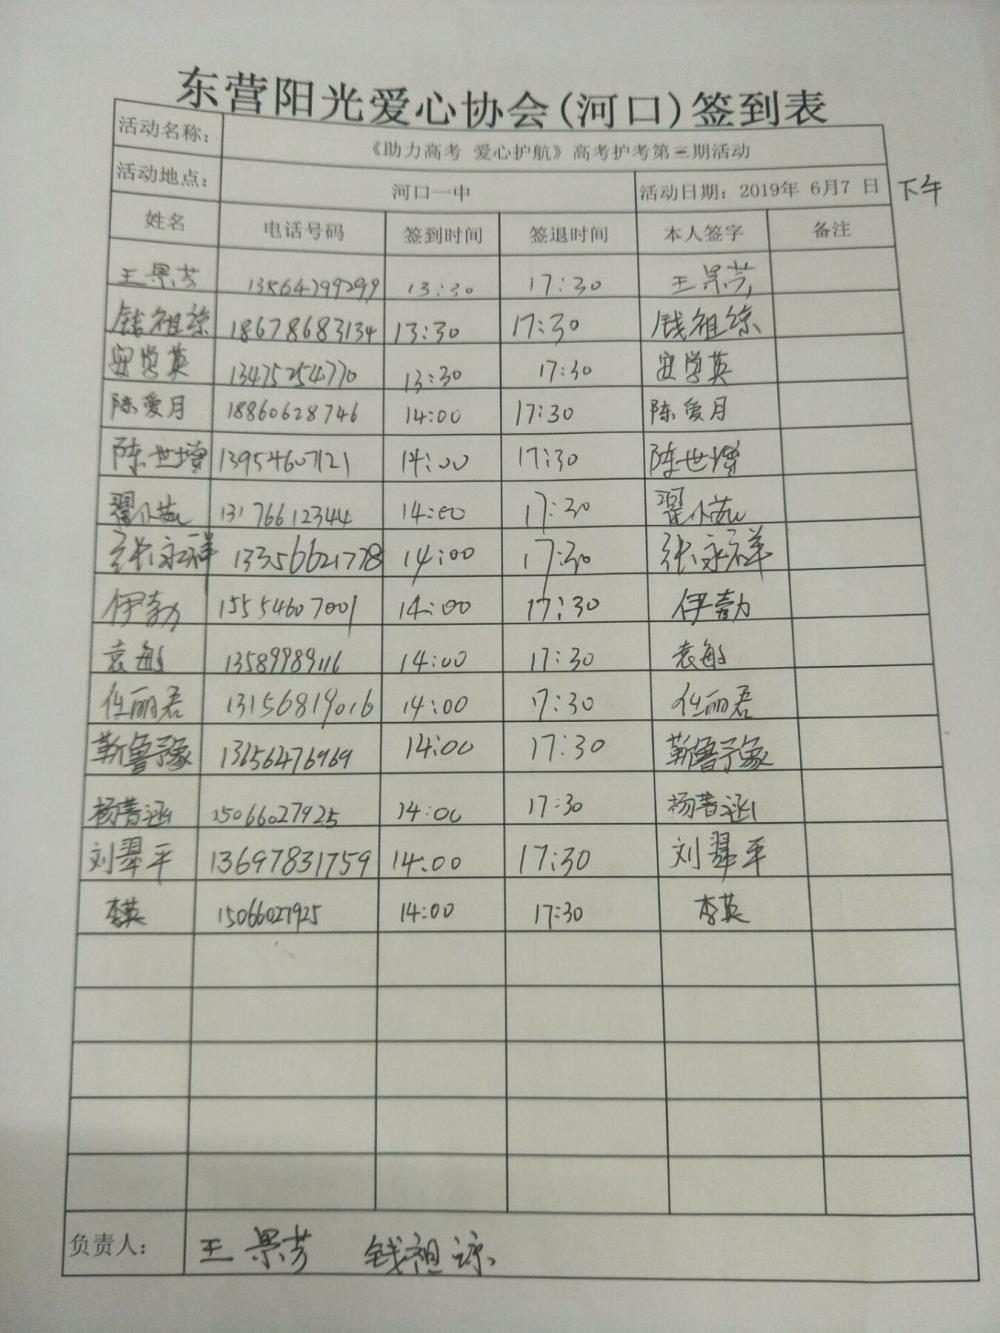 东营阳光爱心协会(河口)签到表
活动名称： 《助力高考 爱心护航》高考护考第三期活动
活动地点： 河口一中 活动日期：2019年 6月7 日 下午
姓名 电话号码 签到时间 签退时间 本人签字 备注
王景芳 13:30 17:30 王景芳
钱祖 18678683134 13:30 17:30 钱祖
安学英 13475254770 13:30 17:30 安学英
陈爱月 18860628746 14:00 17:30 陈爱月
陈世增 13954607121 14:00 17:30 陈世增
翟 13176612344 14:00 17:30 翟
张永祥 13356621778 14:00 17:30 张永祥
伊勃 15554607001 14:00 17:30 伊勃
袁敏 13589989116 14:00 17:30 袁敏
任丽君 13156819016 14:00 17:30 任丽君
靳鲁豫 13656476969 14:00 17:30 靳鲁豫
杨 15066027925 14:00 17:30 杨
刘翠平 13697831759 14:00 17:30 刘翠平
李英 15066027925 14:00 17:30 李英
负责人： 王景芳 钱祖